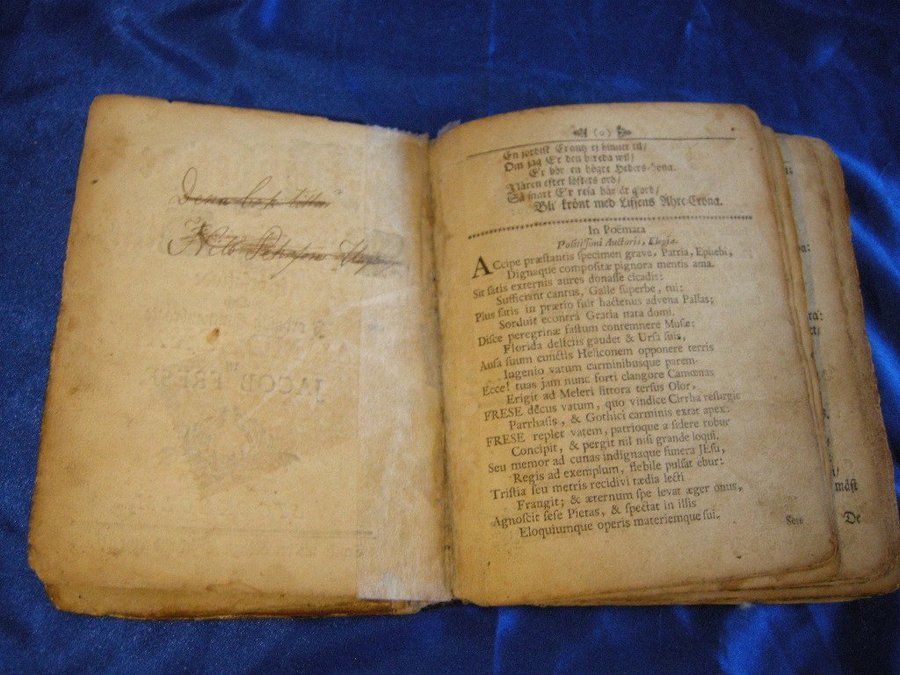 Denna bok
JACOB FRES
(0)
En jordisk Crantz ej hinner til/
Om jag E'r den bereda wil/
E'r bör en högre Heders-bona.
Nären efter löftets ord/
Så snart E'r resa här är g'ord/
Bli' krönt med Lifsens Ähre-Crona.
In Poëmata
Politissimi Auctoris, Elegia.
ACcipe præstantis specimen grave, Patria, Ephebi,
Dignaque compositæ pignora mentis ama.
Sit satis externis aures donasse cicadis:
Sufficiant cantus, Galle superbe, tui:
Plus satis in prætio fuit hactenus advena Pallas;
Sorduit econtrà Gratia nata domi.
Disce peregrinæ fastum contemnere Musæ:
Florida deliciis gaudet & Ursa suis,
Ausa suum cunctis Heliconem opponere terris
Ingenio vatum carminibusque parem.
Ecce! tuas jam nunc forti clangore Camœnas
Erigit ad Meleri littora tersus Olor,
FRESE dēcus vatum, quo vindice Cirrha resurgit
Parrhasis, & Gothici carminis extat apex:
FRESE replet vatem, patrioque a scelere robur
Concipit, & pergit nil nisi grande loqui.
Seu memor ad cunas indignaque funera JEsu,
Regis ad exemplum, flebile pulsat ebur:
Tristia seu metris recidivi tædia lecti
Frangit; & æternum spe levat æger onus,
Agnoscit sese Pietas, & spectat in illis
Eloquiumque operis materiemque sui.
måst
De